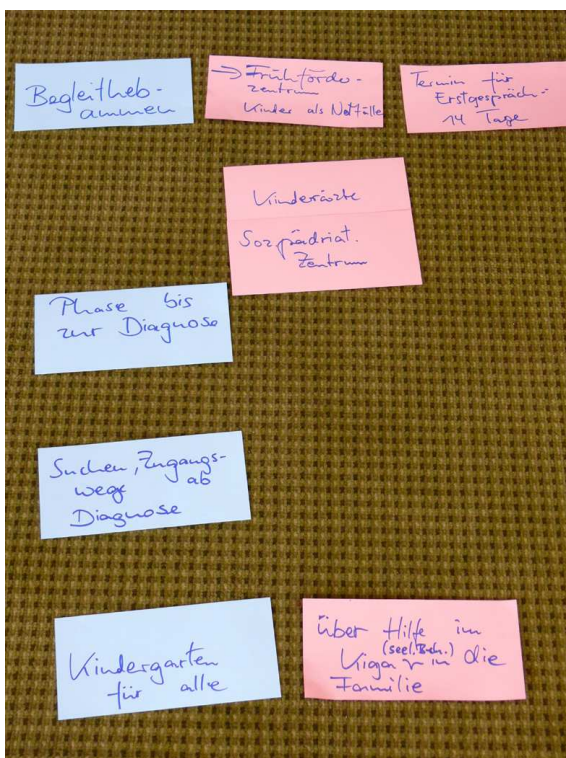 Begleitheb-
ammen
→ Frühförder-
zentrum
Kinder als Notfälle
Termin für
Erstgespräch:
14 Tage
Kinderärzte
Sozpädriat.
Zentrum
Phase bis
zur Diagnose
Suchen, Zugangs-
wege ab
Diagnose
Kindergarten
für alle
über Hilfe im
(seel. Beh.)
Kiga in die
Familie